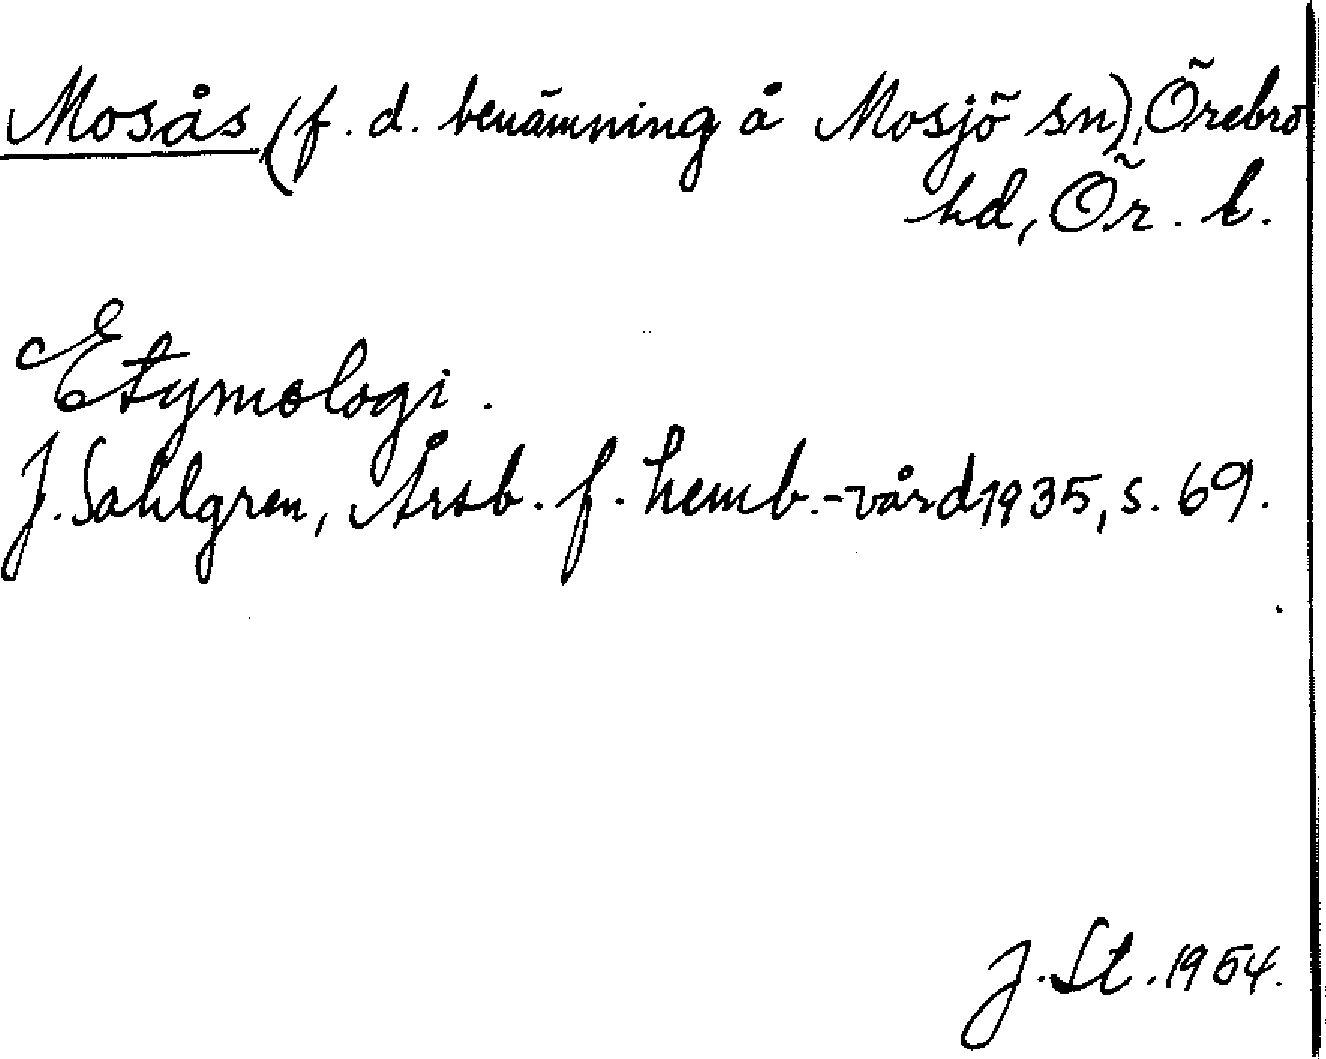 Mosås (f. d. benämning å Mosjö sn), Örebro
hd, Ör. l.
Etymologi.
J. Sahlgren, Årsb. f. hemb.-vård 1935, s. 69.
J. St. 1954.